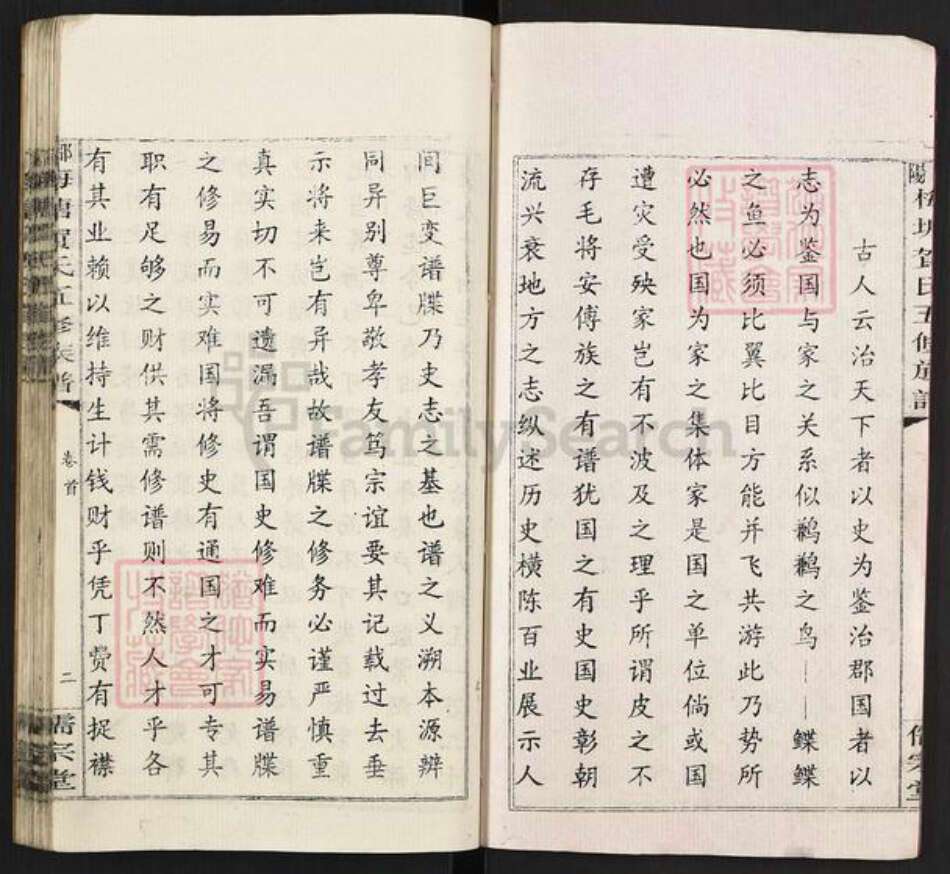 古人云治天下者以史为鉴治郡国者以
志为鉴国与家之关系似鹣鹣之鸟——鲽鲽
之鱼必须比翼比目方能并飞共游此乃势所
必然也国为家之集体家是国之单位倘或国
遭灾受殃家岂有不波及之理乎所谓皮之不
存毛将安傅族之有谱犹国之有史国史彰朝
流兴衰地方之志纵述历史横陈百业展示人
间巨变谱牒乃史志之基也谱之义溯本源辨
同异别尊卑敬孝友笃宗谊要其记载过去垂
示将来岂有异哉故谱牒之修务必谨严慎重
真实切不可遗漏吾谓国史修难而实易谱牒
之修易而实难国将修史有通国之才可专其
职有足够之财供其需修谱则不然人才乎各
有其业赖以维持生计钱财乎凭丁费有捉襟
贺氏五修族谱
卷首
二
儒宗堂
FamilySearch